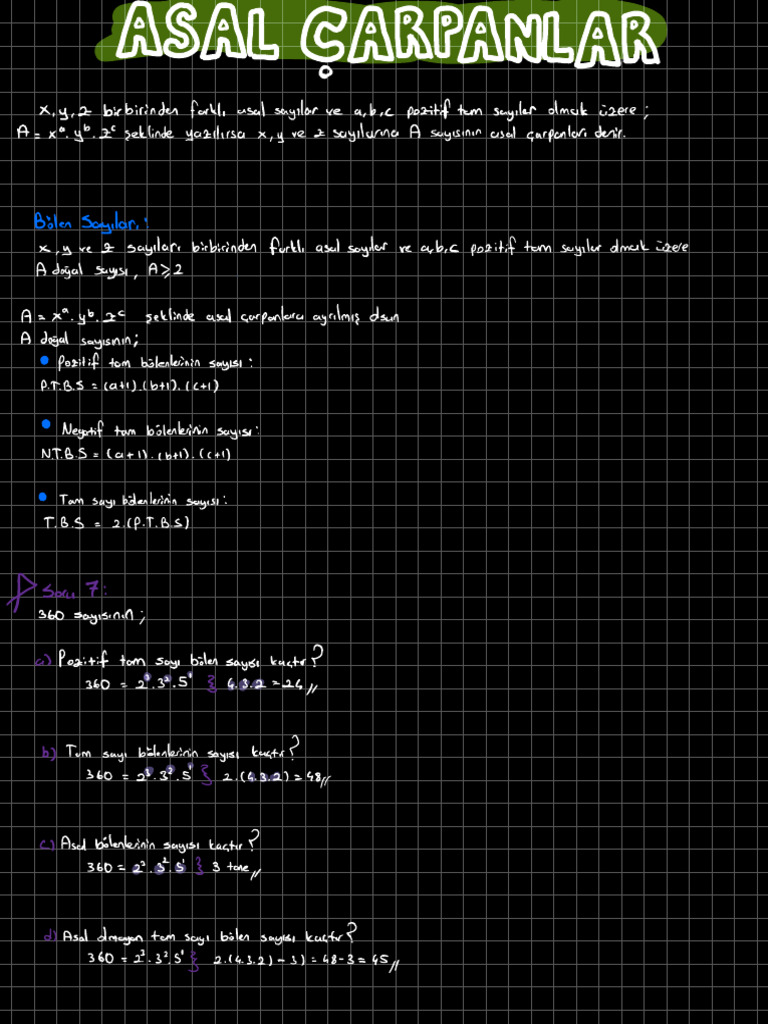 ASAL ÇARPANLAR
x, y, z birbirinden farklı asal sayılar ve a, b, c pozitif tam sayılar olmak üzere;
A = xᵃ. yᵇ. zᶜ şeklinde yazılırsa x, y ve z sayılarına A sayısının asal çarpanları denir.
Bölen Sayıları:
x, y ve z sayıları birbirinden farklı asal sayılar ve a, b, c pozitif tam sayılar olmak üzere
A doğal sayısı, A⩾2
A = xᵃ. yᵇ. zᶜ şeklinde asal çarpanlara ayrılmış olsun
A doğal sayısının;
• Pozitif tam bölenlerinin sayısı:
P.T.B.S = (a+1).(b+1).(c+1)
• Negatif tam bölenlerinin sayısı:
N.T.B.S = (a+1).(b+1).(c+1)
• Tam sayı bölenlerinin sayısı:
T.B.S = 2.(P.T.B.S)
Soru 7:
360 sayısının;
a) Pozitif tam sayı bölen sayısı kaçtır?
360 = 2³.3².5¹ } 4.3.2 = 24//
b) Tam sayı bölenlerinin sayısı kaçtır?
360 = 2³.3².5¹ } 2.(4.3.2) = 48//
c) Asal bölenlerinin sayısı kaçtır?
360 = 2³.3².5¹ } 3 tane//
d) Asal olmayan tam sayı bölen sayısı kaçtır?
360 = 2³.3².5¹ } 2.(4.3.2) - 3) = 48-3 = 45//